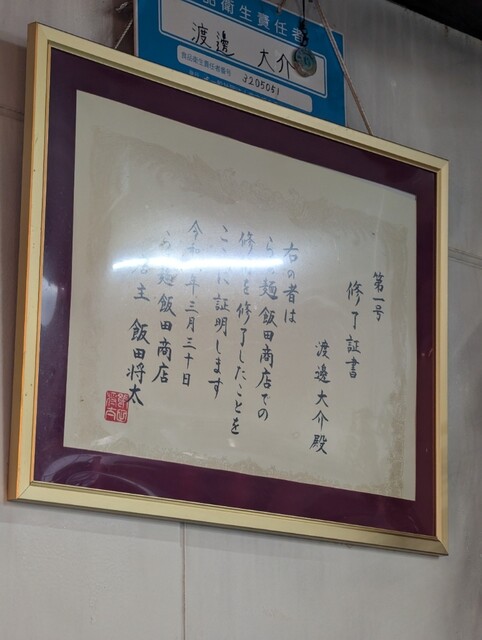 品衛生責任者
渡邊 大介
食品衛生責任者番号
3205051
第一号
修了証書
渡邊大介殿
右の者は
らぁ麺飯田商店での
修行を修了したことを
ここに証明します
令和 年三月三十日
らぁ麺飯田商店
店主 飯田将太